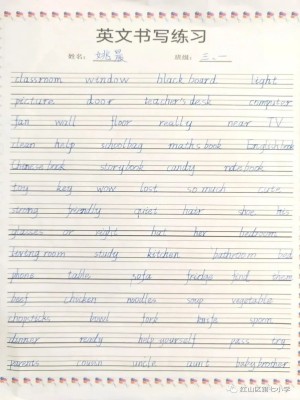 英文书写练习
姓名: 姚晨 班级: 三、一
classroom window blackboard light
picture door teacher's desk computer
fan wall floor really near TV
clean help schoolbag maths book English book
Chinese book storybook candy notebook
toy key wow lost so much cute
strong friendly quiet hair shoe his
glasses or right hat her bedroom
living room study kitchen bathroom bed
phone table sofa fridge find them
beef chicken noodles soup vegetable
chopsticks bowl fork knife spoon
dinner ready help yourself pass try
parents cousin uncle aunt baby brother
红山区第七小学